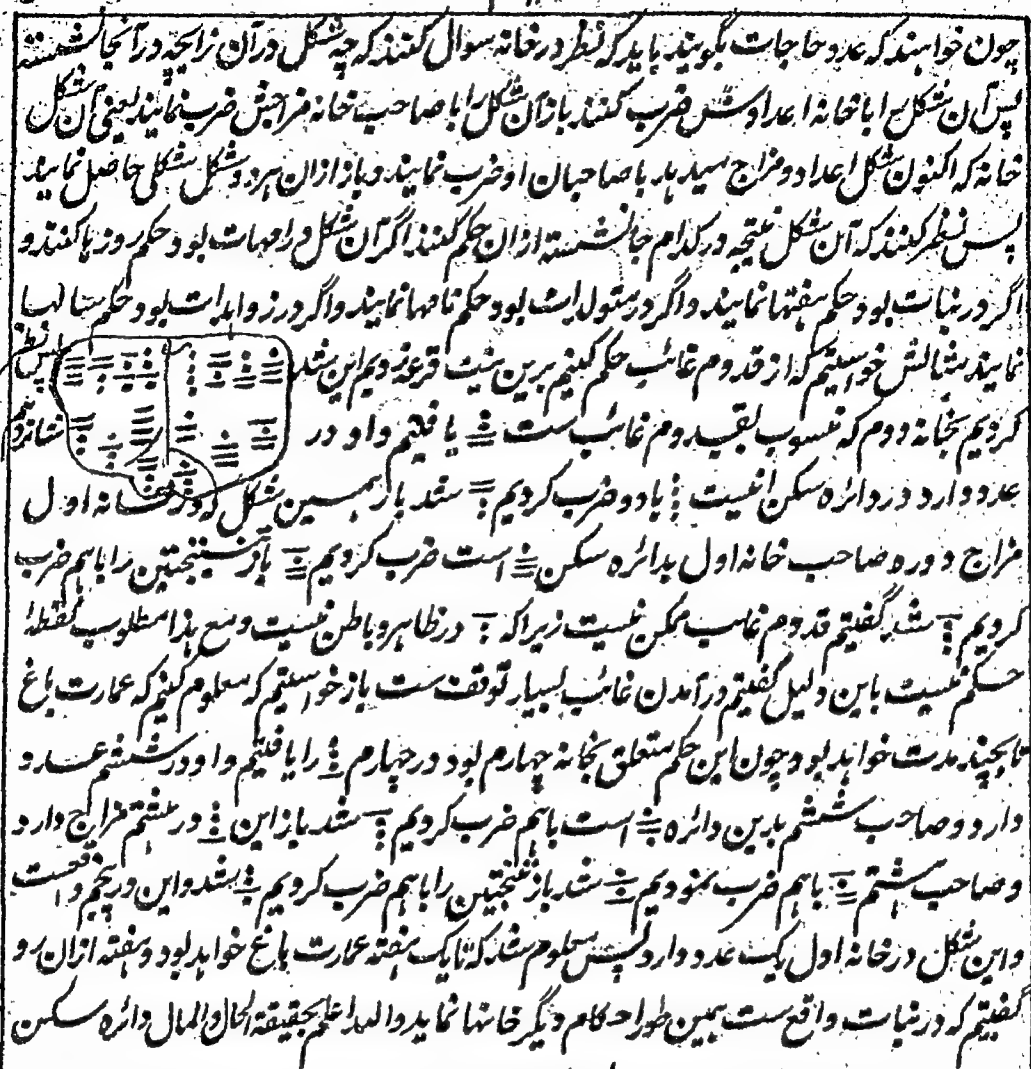 چون خواهند که عدد حاجات بگویند باید که نظر در خانه سوال کنند که چه شکل در آن زایچه در آنجا نشسته
پس آن شکل را با خانه اعداد ضرب کنند باز آن شکل را با صاحب خانه مزاجش ضرب نمایند یعنی آن شکل
خانه که اکنون شکل اعداد و مزاج میدهد با صاحبان او ضرب نمایند و باز ازان هر دو شکل شکلی حاصل نمایند
پس نظر کنند که آن شکل نتیجه در کدام جا نشسته ازان حکم کنند اگر آن شکل در امهات بود حکم روزها کنند و
اگر در بنات بود حکم هفتها نمایند و اگر در متولدات بود حکم ماهها نمایند و اگر در زوایدات بود حکم سالها
نمایند مثالش خواستیم که از قدوم غائب حکم کنیم برین نیت قرعه زدیم این شد پس نظر
کردیم بخانه دوم که منسوب بقدوم غائب ست یافتیم و او در
عدد دارد در دائره سکن نیست با او ضرب کردیم شد باز همین شکل که در خانه اول
مزاج دوره صاحب خانه اول بدائره سکن است ضرب کردیم باز نتیجتین را باهم ضرب
کردیم شد گفتیم قدوم غائب ممکن نیست زیرا که در ظاهر و باطن نیست و مع هذا مطلوب نقطهٔ
حکم نیست باین دلیل گفتیم در آمدن غائب بسیار توقف ست باز خواستیم که معلوم کنیم که عمارت باغ
تا بچند مدت خواهد بود چون این حکم متعلق بخانه چهارم بود در چهارم را یافتیم و او در ششم عدد
دارد و صاحب ششم بدین دائره است باهم ضرب کردیم شد باز این در هشتم مزاج دارد
و صاحب هشتم باهم ضرب نمودیم شد باز نتیجتین را باهم ضرب کردیم شد و این در پنجم واقعست
و این شکل در خانه اول یک عدد دارد پس معلوم شد که تا یک هفته عمارت باغ خواهد بود و هفته ازان رو
گفتیم که در بنات واقع ست بهمین طور احکام دیگر خانها نماید والله اعلم بحقیقة الحال والمال دائره سکن